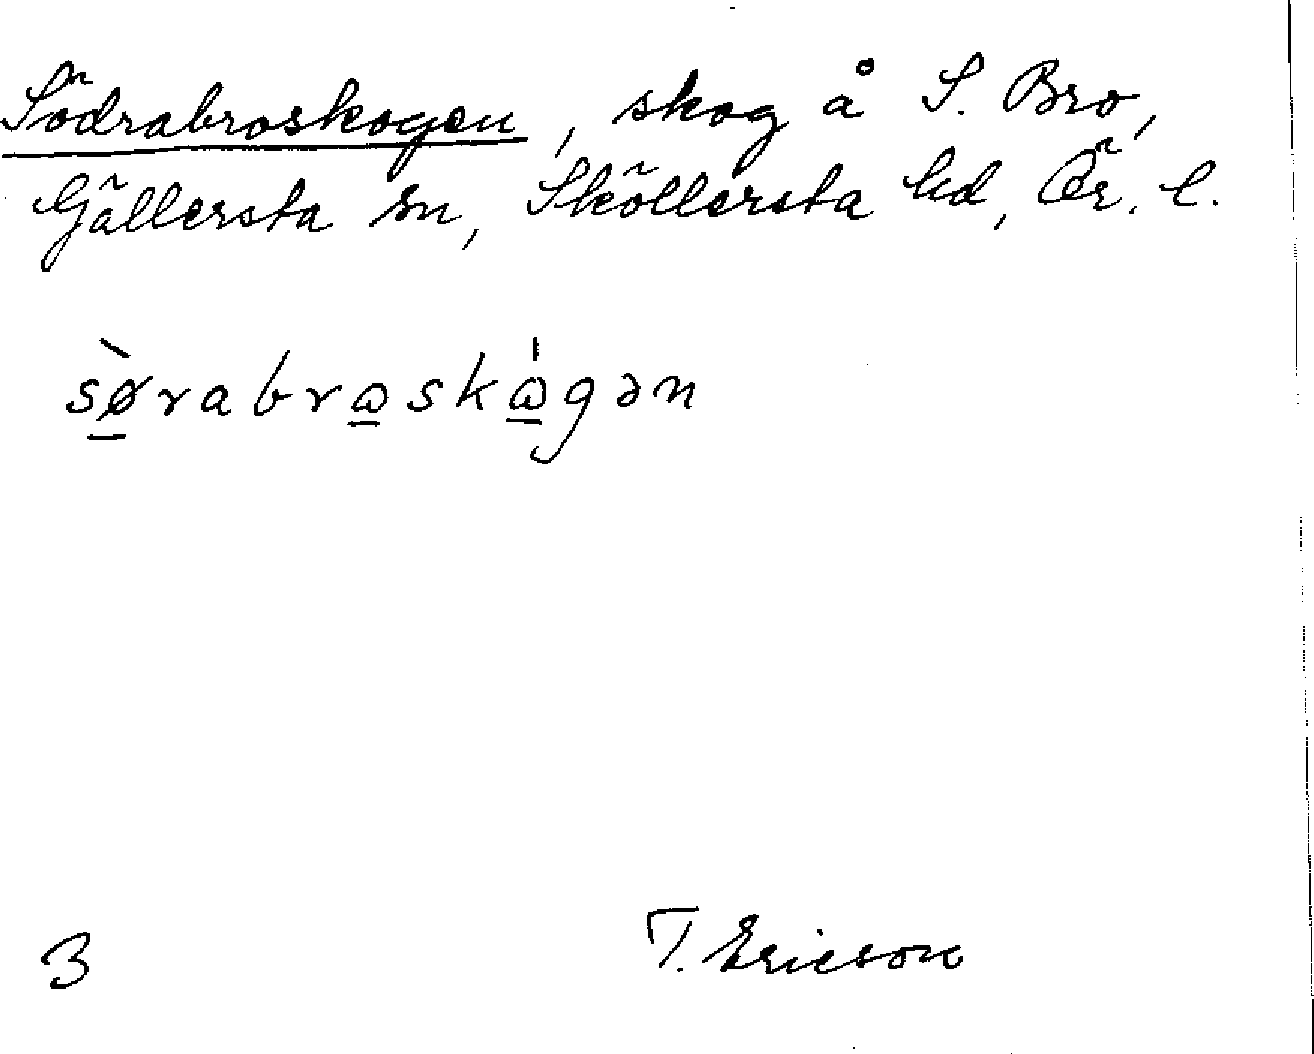 Södrabroskogen, skog å S. Bro,
Gällersta sn, Sköllersta hd, Ör. l.
sø̠̀rabrɷ̠skɷ̠́gən
3
T. Ericson